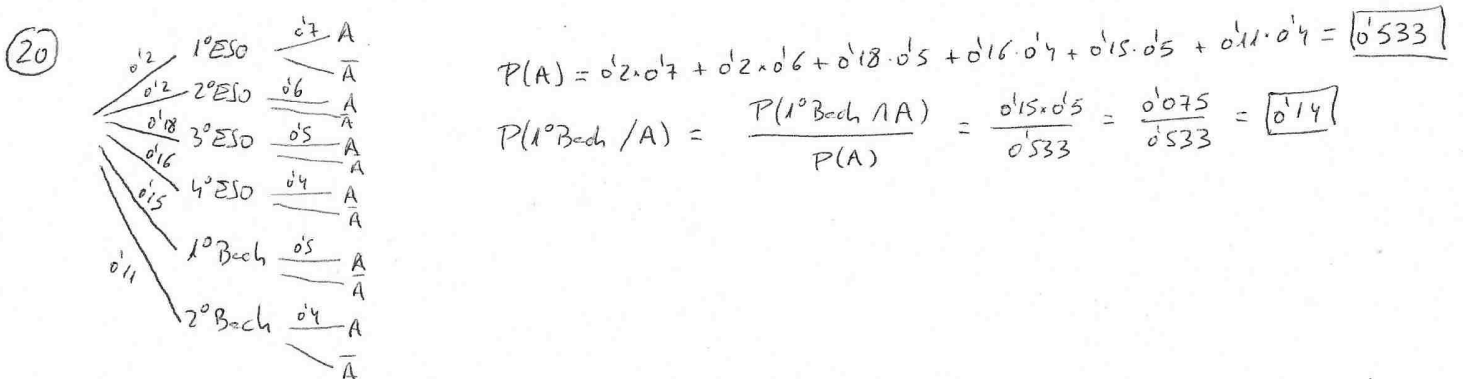 20
0'2 1ºESO 0'7 A
A̅
0'2 2ºESO 0'6 A
A̅
0'18 3ºESO 0'5 A
A̅
0'16 4ºESO 0'4 A
A̅
0'15 1ºBach 0'5 A
A̅
0'11 2ºBach 0'4 A
A̅
P(A) = 0'2×0'7 + 0'2×0'6 + 0'18·0'5 + 0'16·0'4 + 0'15·0'5 + 0'11·0'4 = 0'533
P(1ºBach /A) = P(1ºBach ∩A) / P(A) = 0'15×0'5 / 0'533 = 0'075 / 0'533 = 0'14